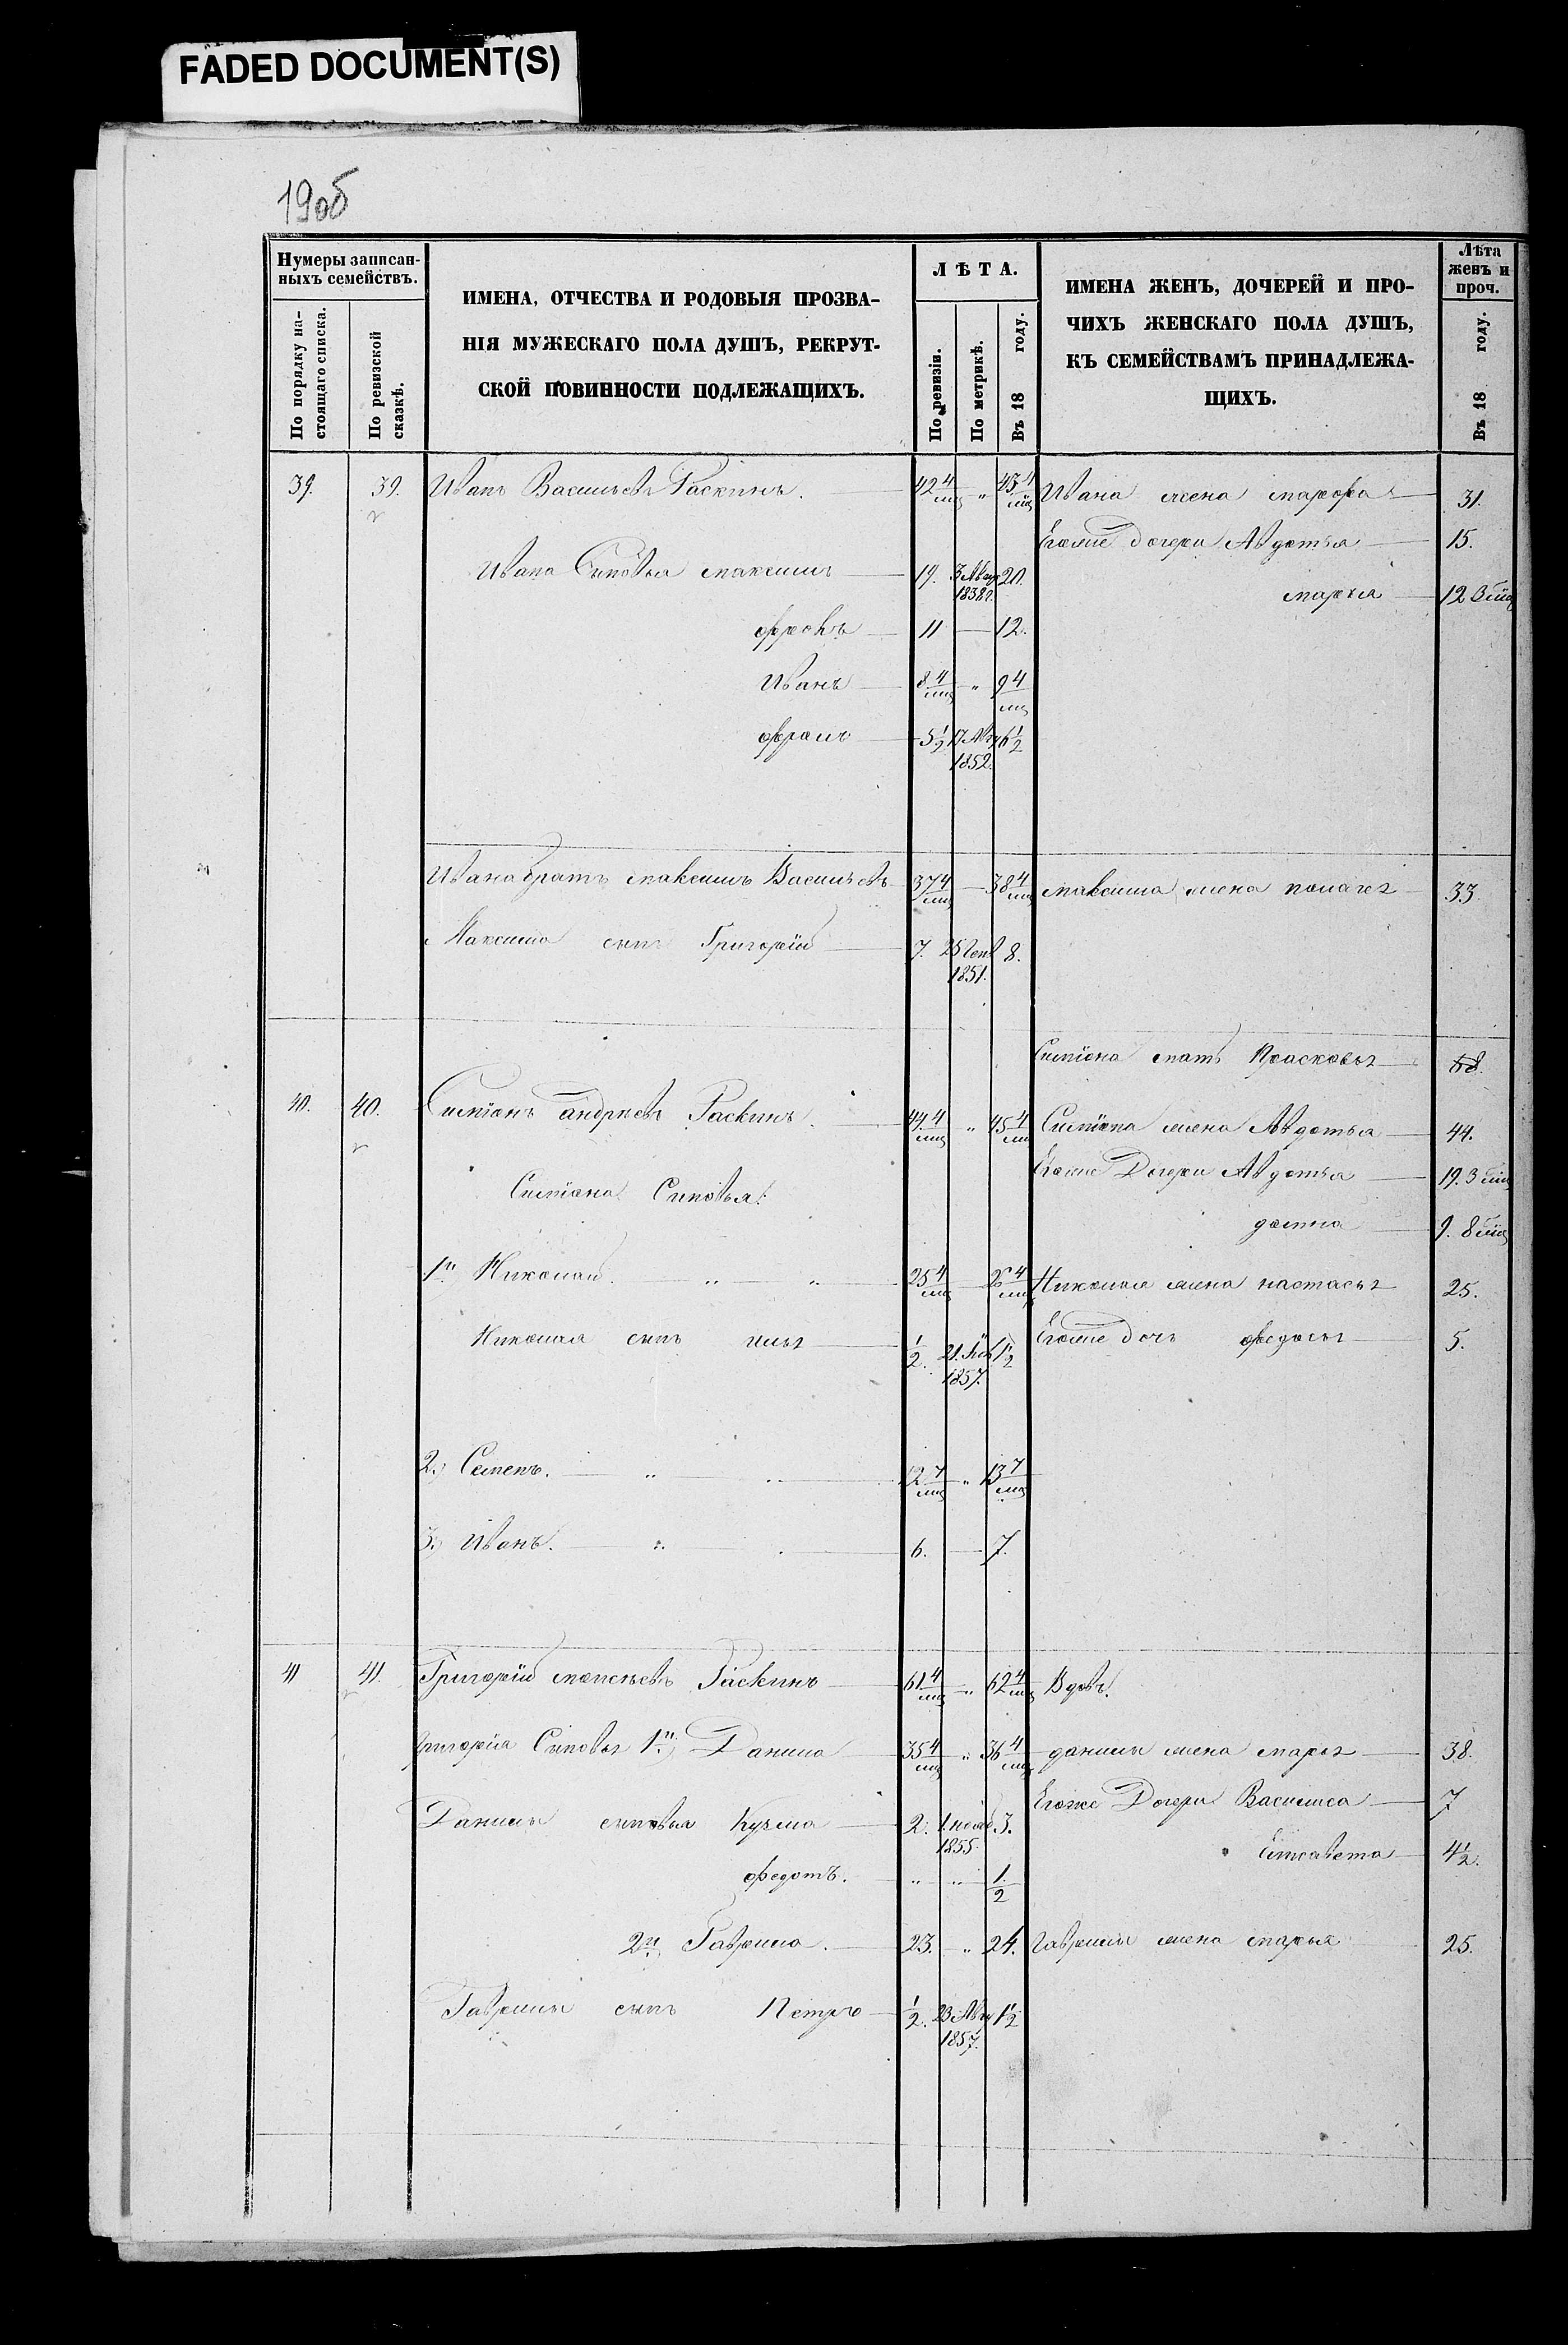 FADED DOCUMENT(S)
190б
Нумеры записан-
ныхъ семействъ.
По порядку на-
стоящаго списка.
По ревизской
сказкѣ.
ИМЕНА, ОТЧЕСТВА И РОДОВЫЯ ПРОЗВА-
НІЯ МУЖЕСКАГО ПОЛА ДУШЪ, РЕКРУТ-
СКОЙ ПОВИННОСТИ ПОДЛЕЖАЩИХЪ.
ЛѢТА.
По ревизіи.
По метрикѣ.
Въ 18 году.
ИМЕНА ЖЕНЪ, ДОЧЕРЕЙ И ПРО-
ЧИХЪ ЖЕНСКАГО ПОЛА ДУШЪ,
КЪ СЕМЕЙСТВАМЪ ПРИНАДЛЕЖА-
ЩИХЪ.
Лѣта
женъ и
проч.
Въ 18 году.
39. 39. Иванъ Васильевъ Раскинъ. 42 4/мц " 43 4/мц Ивана жена марфа 31.
Егоже дочери Авдотья 15.
Ивана Сыновья максимъ 19. 3 Авгу 1838 г. 20.
марья 12 3 мц
11 12.
Иванъ 8 4/мц " 9 4/мц
ефримъ 5 1/2 17 Авгу 1852. 6 1/2
Ивана братъ максимъ Васильевъ 37 4/мц 38 4/мц максима жена 33.
Максима сынъ Григорій 7. 25 Генв 1851. 8.
Симіона мать Прасковья 68.
40. 40. Симіонъ андреевъ Раскинъ. 44 4/мц " 45 4/мц Симіона жена Авдотья 44.
Егоже Дочери Авдотья 19. 3 мц
Симіона Сыновья:
домна 9. 8 мц
1й Николай. " " 25 4/мц 26 4/мц Николая жена настасья 25.
Николая сынъ илья 1/2. 21. 1857. 1 1/2 Егоже дочь федосья 5.
2.) Семенъ. " 12 7/мц " 13 7/мц
3.) Иванъ. " 6. 7.
41 41. Григорій моисѣевъ Раскинъ 61 4/мц " 62 4/мц Вдовъ.
григорія Сыновья 1й.) Данила 35 4/мц " 36 4/мц данилы жена марья 38.
Егоже Дочери Василиса 7
Данилы сыновья Кузма 2. 1. нояб 1855. 3.
Елисавета 4 1/2.
федотъ. " " 1/2
2й Гаврила. 23. " 24. Гаврилы жена марья 25.
Гаврилы сынъ Петръ 1/2. 23 Авгу 1857. 1 1/2